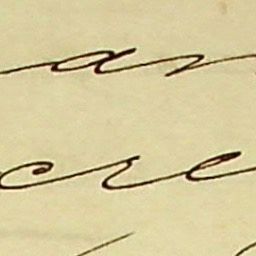 an
cre